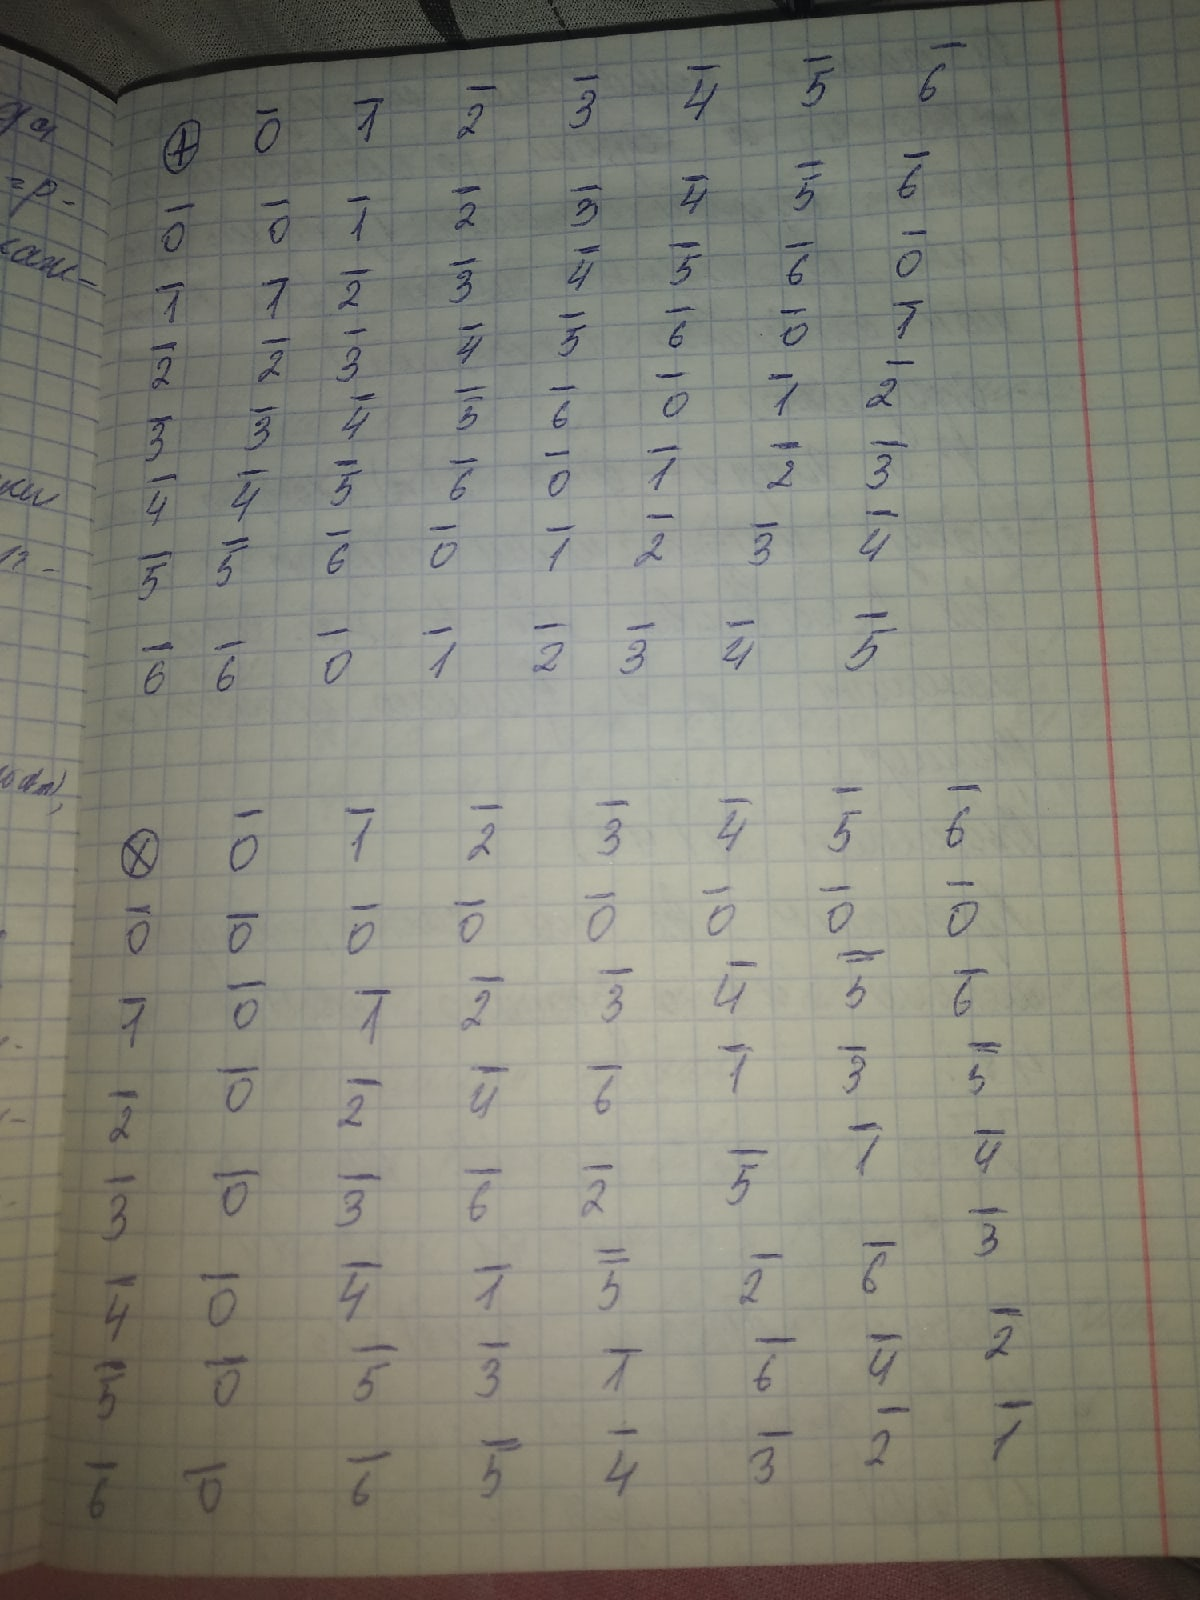 да
=р-
⊕ 0̅ 1̅ 2̅ 3̅ 4̅ 5̅ 6̅
0̅ 0̅ 1̅ 2̅ 3̅ 4̅ 5̅ 6̅
1̅ 1̅ 2̅ 3̅ 4̅ 5̅ 6̅ 0̅
2̅ 2̅ 3̅ 4̅ 5̅ 6̅ 0̅ 1̅
3̅ 3̅ 4̅ 5̅ 6̅ 0̅ 1̅ 2̅
4̅ 4̅ 5̅ 6̅ 0̅ 1̅ 2̅ 3̅
5̅ 5̅ 6̅ 0̅ 1̅ 2̅ 3̅ 4̅
6̅ 6̅ 0̅ 1̅ 2̅ 3̅ 4̅ 5̅
⊗ 0̅ 1̅ 2̅ 3̅ 4̅ 5̅ 6̅
0̅ 0̅ 0̅ 0̅ 0̅ 0̅ 0̅ 0̅
1̅ 0̅ 1̅ 2̅ 3̅ 4̅ 5̅ 6̅
2̅ 0̅ 2̅ 4̅ 6̅ 1̅ 3̅ 5̅
3̅ 0̅ 3̅ 6̅ 2̅ 5̅ 1̅ 4̅
4̅ 0̅ 4̅ 1̅ 5̅ 2̅ 6̅ 3̅
5̅ 0̅ 5̅ 3̅ 1̅ 6̅ 4̅ 2̅
6̅ 0̅ 6̅ 5̅ 4̅ 3̅ 2̅ 1̅